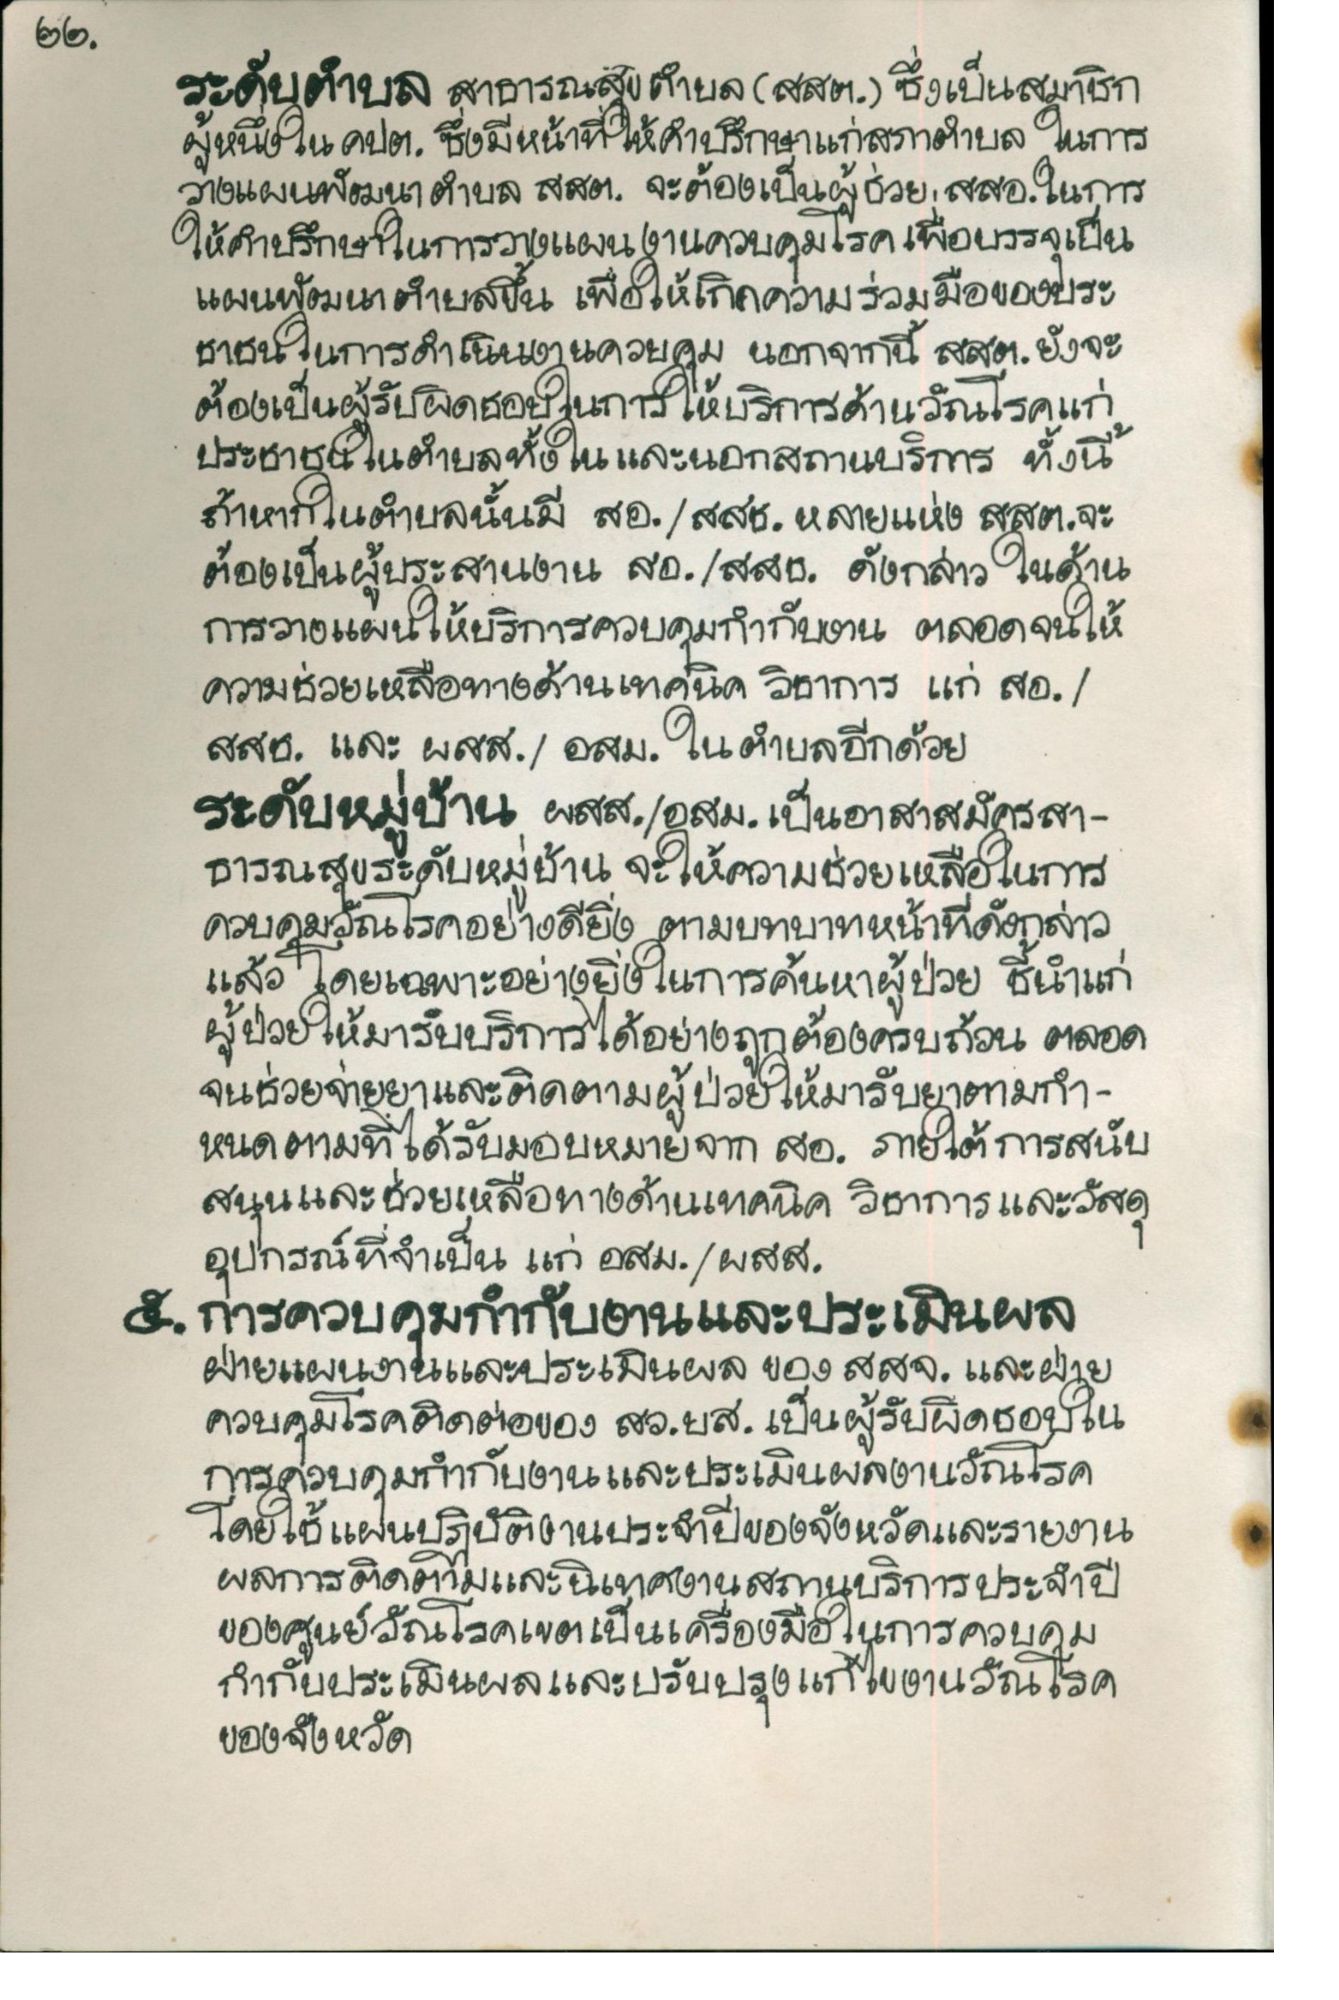 ๒๒.
ระดับตำบล สาธารณสุขตำบล (สสต.) ซึ่งเป็นสมาชิก
ผู้หนึ่งใน คปต. ซึ่งมีหน้าที่ให้คำปรึกษาแก่สภาตำบล ในการ
วางแผนพัฒนาตำบล สสต. จะต้องเป็นผู้ช่วย สสอ. ในการ
ให้คำปรึกษาในการวางแผนงานควบคุมโรค เพื่อบรรจุเป็น
แผนพัฒนาตำบลขึ้น เพื่อให้เกิดความร่วมมือของประ
ชาชนในการดำเนินงานควบคุม นอกจากนี้ สสต. ยังจะ
ต้องเป็นผู้รับผิดชอบในการให้บริการด้านวัณโรคแก่
ประชาชนในตำบลทั้งในและนอกสถานบริการ ทั้งนี้
ถ้าหากในตำบลนั้นมี สอ./สสช. หลายแห่ง สสต.จะ
ต้องเป็นผู้ประสานงาน สอ./สสช. ดังกล่าว ในด้าน
การวางแผนให้บริการควบคุมกำกับงาน ตลอดจนให้
ความช่วยเหลือทางด้านเทคนิค วิชาการ แก่ สอ./
สสช. และ ผสส./ อสม. ในตำบลอีกด้วย
ระดับหมู่บ้าน ผสส./อสม. เป็นอาสาสมัครสา-
ธารณสุขระดับหมู่บ้าน จะให้ความช่วยเหลือในการ
ควบคุมวัณโรคอย่างดียิ่ง ตามบทบาทหน้าที่ดังกล่าว
แล้ว โดยเฉพาะอย่างยิ่งในการค้นหาผู้ป่วย ชี้นำแก่
ผู้ป่วยให้มารับบริการได้อย่างถูกต้องครบถ้วน ตลอด
จนช่วยจ่ายยาและติดตามผู้ป่วยให้มารับยาตามกำ-
หนดตามที่ได้รับมอบหมายจาก สอ. ภายใต้การสนับ
สนุนและช่วยเหลือทางด้านเทคนิค วิชาการและวัสดุ
อุปกรณ์ที่จำเป็น แก่ อสม./ผสส.
๕. การควบคุมกำกับงานและประเมินผล
ฝ่ายแผนงานและประเมินผล ของ สสจ. และฝ่าย
ควบคุมโรคติดต่อของ สว.ยส. เป็นผู้รับผิดชอบใน
การควบคุมกำกับงานและประเมินผลงานวัณโรค
โดยใช้แผนปฏิบัติงานประจำปีของจังหวัดและรายงาน
ผลการติดตามและนิเทศงานสถานบริการประจำปี
ของศูนย์วัณโรคเขตเป็นเครื่องมือในการควบคุม
กำกับประเมินผลและปรับปรุงแก้ไขงานวัณโรค
ของจังหวัด